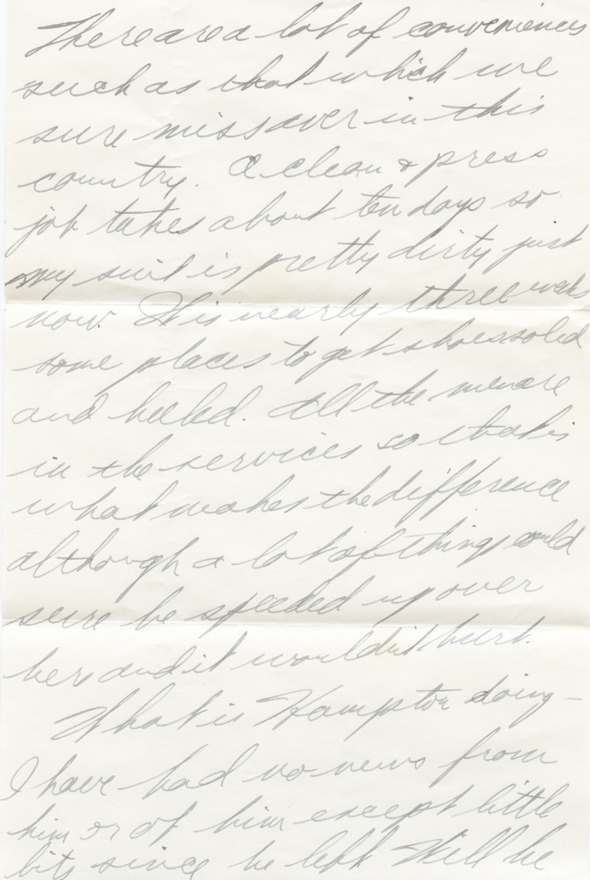 There are a lot of conveniences
such as that which we
sure miss over in this
country. A clean & press
job takes about ten days so
my suit is pretty dirty just
now. It is nearly three weeks
some places to get shoes soled
and heeled. All the men are
in the services so that is
what makes the difference
although a lot of things could
sure be speeded up over
here and it wouldn't hurt.
What is Hampton doing -
I have had no news from
him or of him except little
bits since he left. Will he